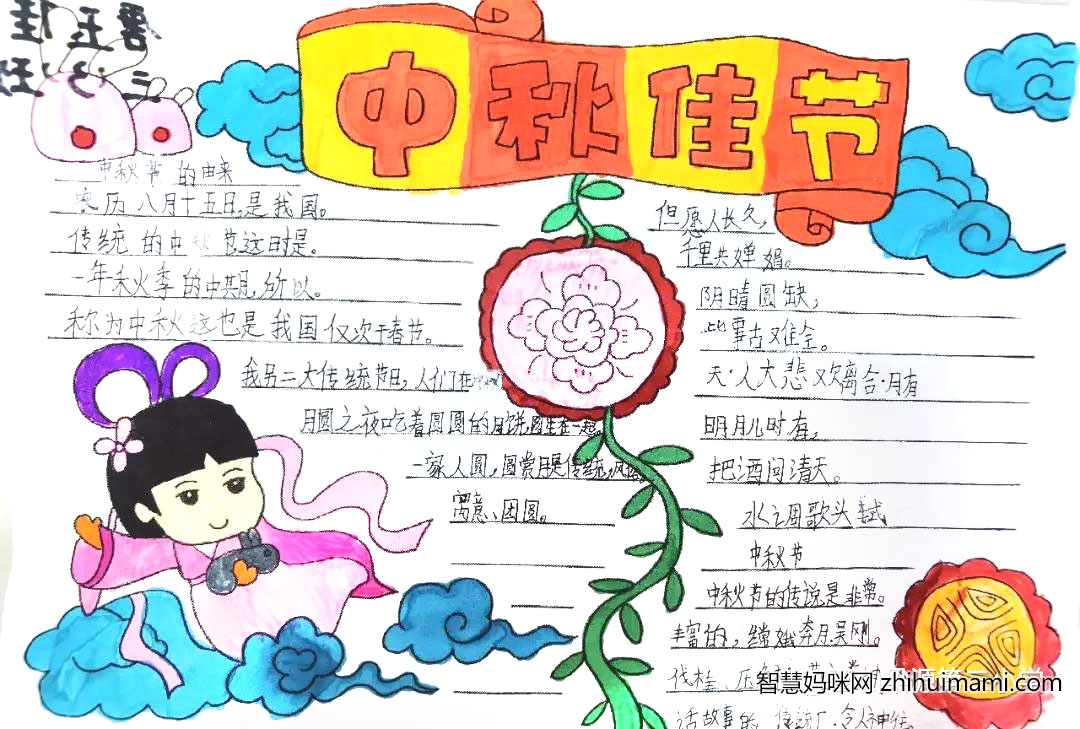 中秋佳节
中秋节的由来
农历八月十五日,是我国。
传统的中秋节这时是。
一年秋季的中期,所以。
称为中秋这也是我国仅次于春节。
我另二大传统节日,人们在
月圆之夜吃着圆圆的月饼,
一家人圆,圆赏月是传统,
寓意、团圆。
但愿人长久,
千里共婵娟。
阴晴圆缺,
此事古难全。
天·人大悲欢离合·月有
明月几时有,
把酒问清天。
水调歌头
中秋节
中秋节的传说是非常。
丰富的,嫦娥奔月吴刚。
伐桂、
话故事的
智慧妈咪网 zhihuimami.com